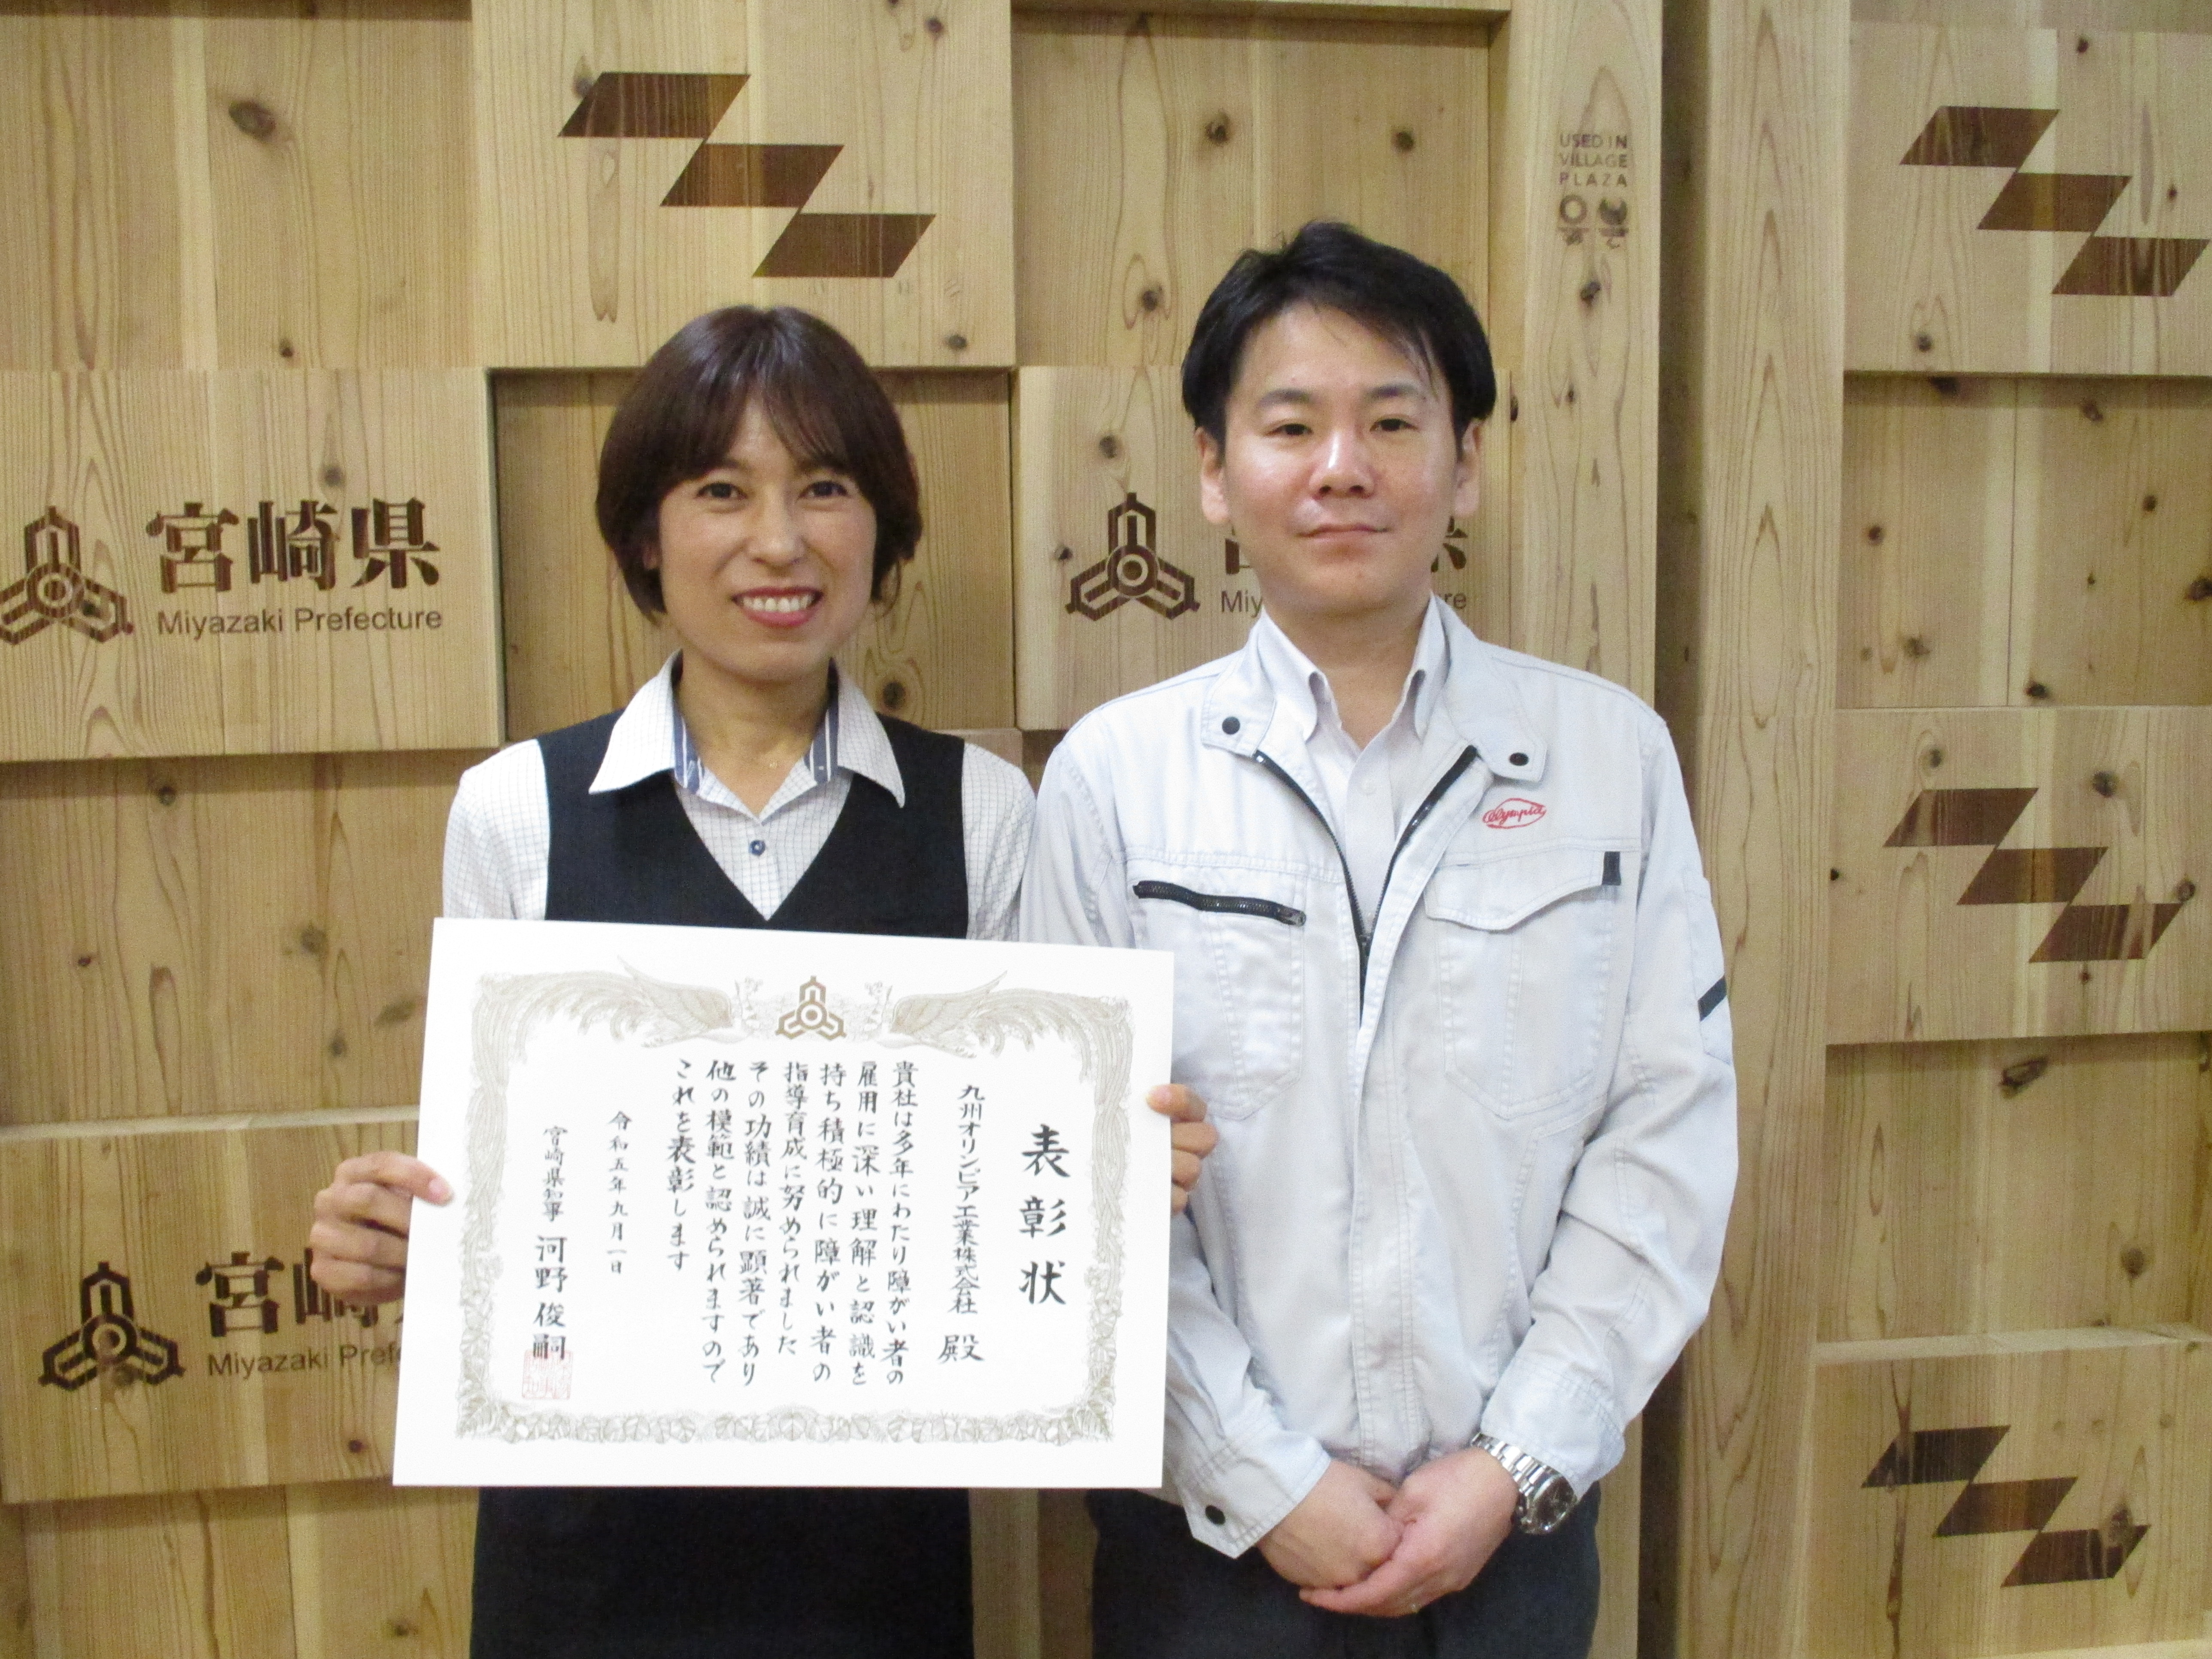 USED IN
VILLAGE
PLAZA
宮崎県
Miyazaki Prefecture
県
Miy
re
Olympia
表彰状
九州オリンピア工業株式会社 殿
貴社は多年にわたり障がい者の
雇用に深い理解と認識を
持ち積極的に障がい者の
指導育成に努められました
その功績は誠に顕著であり
他の模範と認められますので
これを表彰します
令和五年九月一日
宮崎県知事 河野俊嗣
宮崎
Miyazaki Pref